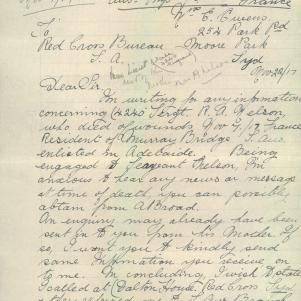 France
E. Owens
254 Park Rd
To
Red Cross Bureau Moore Park
S. A. Syd
Nov 22/17
Dear Sir
I'm writing for any information
concerning (4240 Sergt. R. A. Nelson,
who died of wounds Nov 9/17 France
Resident of Murray Bridge S. Aus
enlisted in Adelaide. Being
engaged to Sergeant Nelson, I'm
anxious to hear any news or message
at time of death, you can possibly
obtain from Abroad.
An enquiry may already have been
sent in to you from his Mother If
so, I want you to kindly send
same information you receive on
to me. In concluding, I wish to state
I called at Dalton House, Red Cross Syd